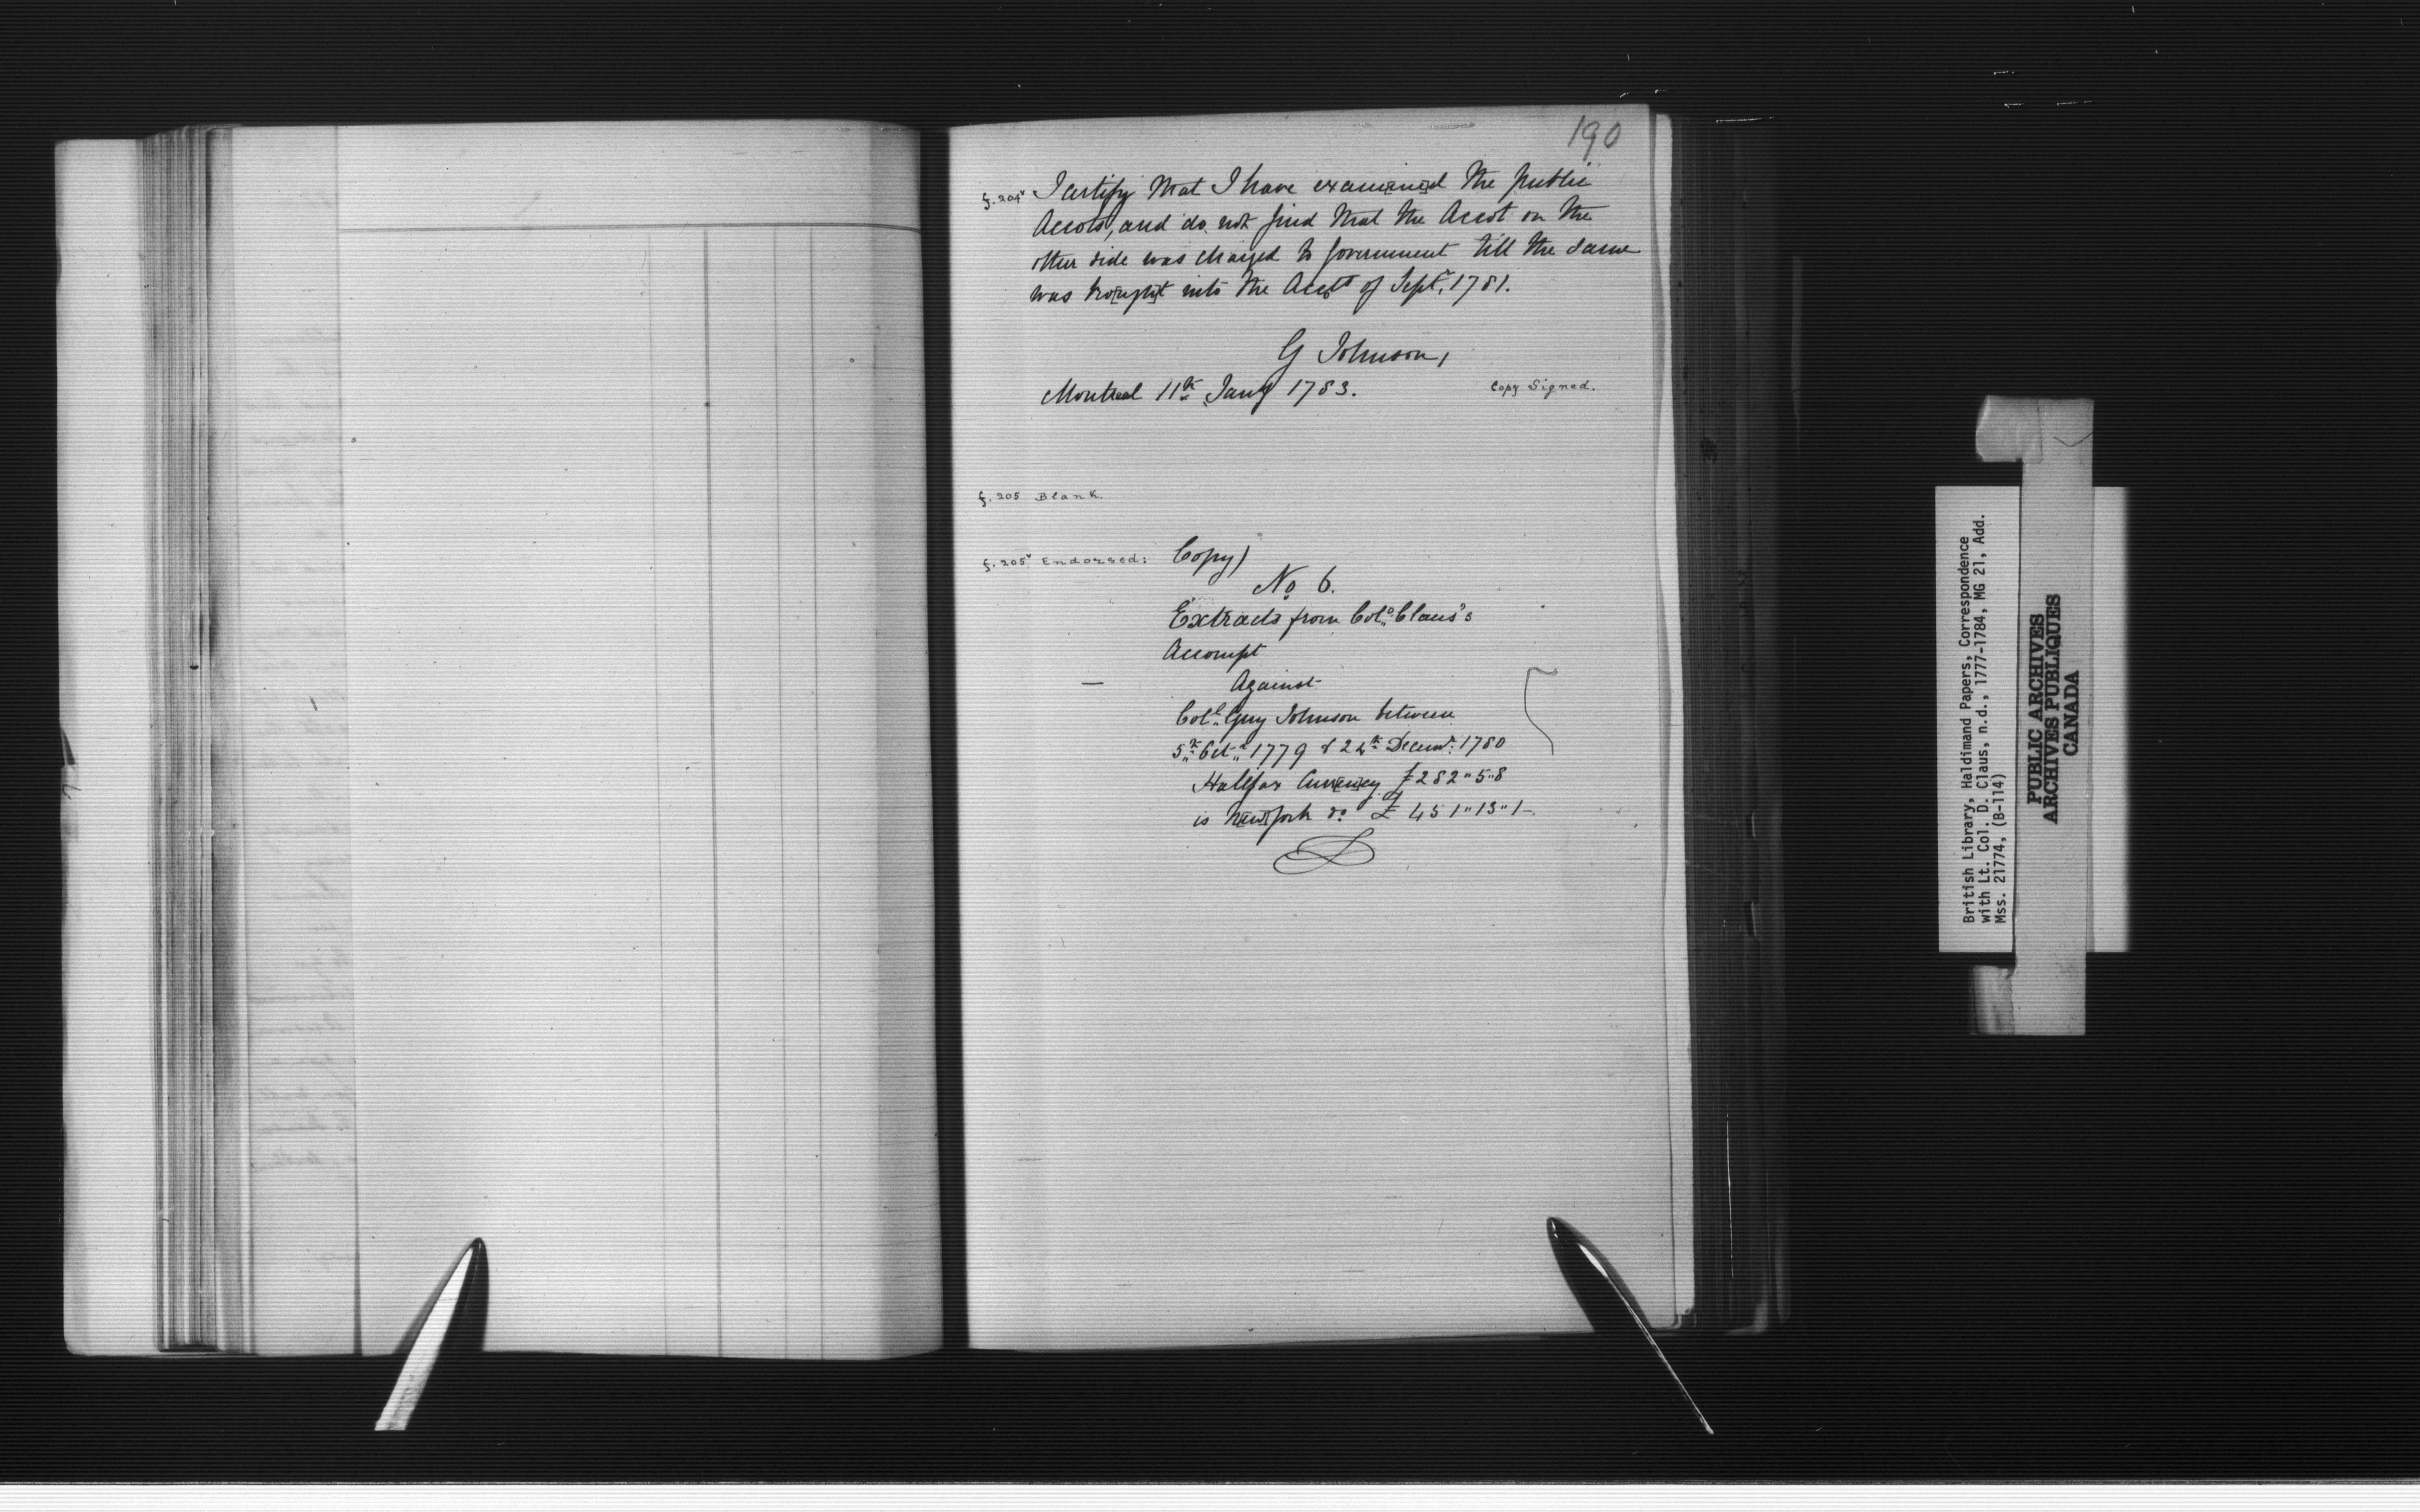 190
f. 204v I certify that I have exam[ine]d the public
Accots, and do not find that the Accot on the
other side was charged to Government till the same
was bro[ugh]t into the Accot of Septr. 1781.
G Johnson,
Montreal 11th Jany 1783.
Copy Signed.
f. 205 Blank.
f. 205v Endorsed: Copy)
No 6.
Extracts from Colo Claus's
Accompt
Against
Coll Guy Johnson between
5th Octr 1779 & 24th Decemr: 1780
Halifax Curr[en]cy £282"5"8
is N[ew] York do £ 451"13"1-.
British Library, Haldimand Papers, Correspondence
with Lt. Col. D. Claus, n.d., 1777-1784, MG 21, Add.
Mss. 21774, (B-114)
PUBLIC ARCHIVES
ARCHIVES PUBLIQUES
CANADA